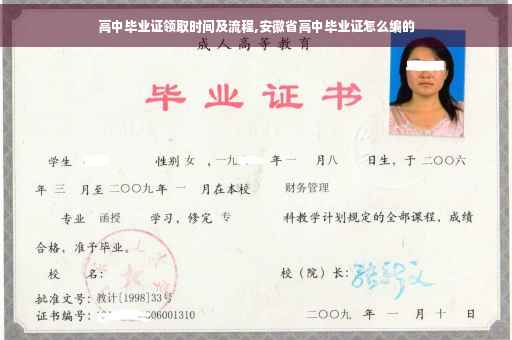 高中毕业证领取时间及流程,安徽省高中毕业证怎么编的
成人高等教育
毕业证书
学生 性别 女 ,一九 年 一 月八 日生,于二〇〇六
年 三 月至二〇〇九年 一 月在本校 财务管理
专业 函授 学习,修完 专 科教学计划规定的全部课程,成绩
合格,准予毕业。
校 名: 校(院)长:
批准文号:教计[1998]33号
证书编号: 06001310 二〇〇九 年 一 月 十 日